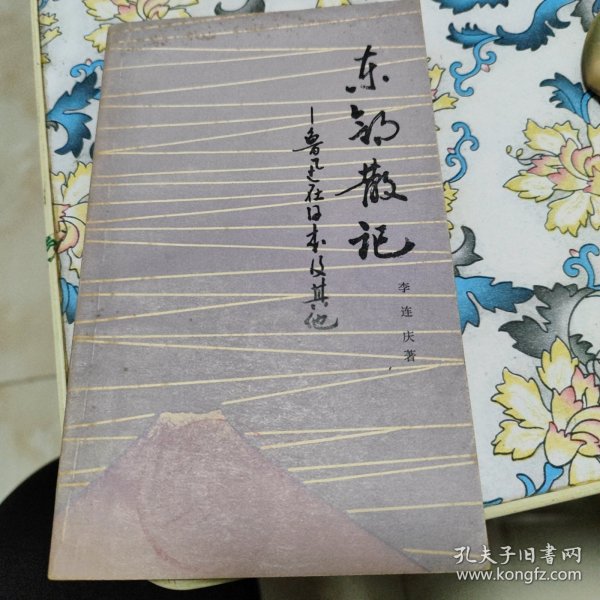 东邻散记
—鲁迅在日本及其他
李连庆著
孔夫子旧書网
www.kongfz.com